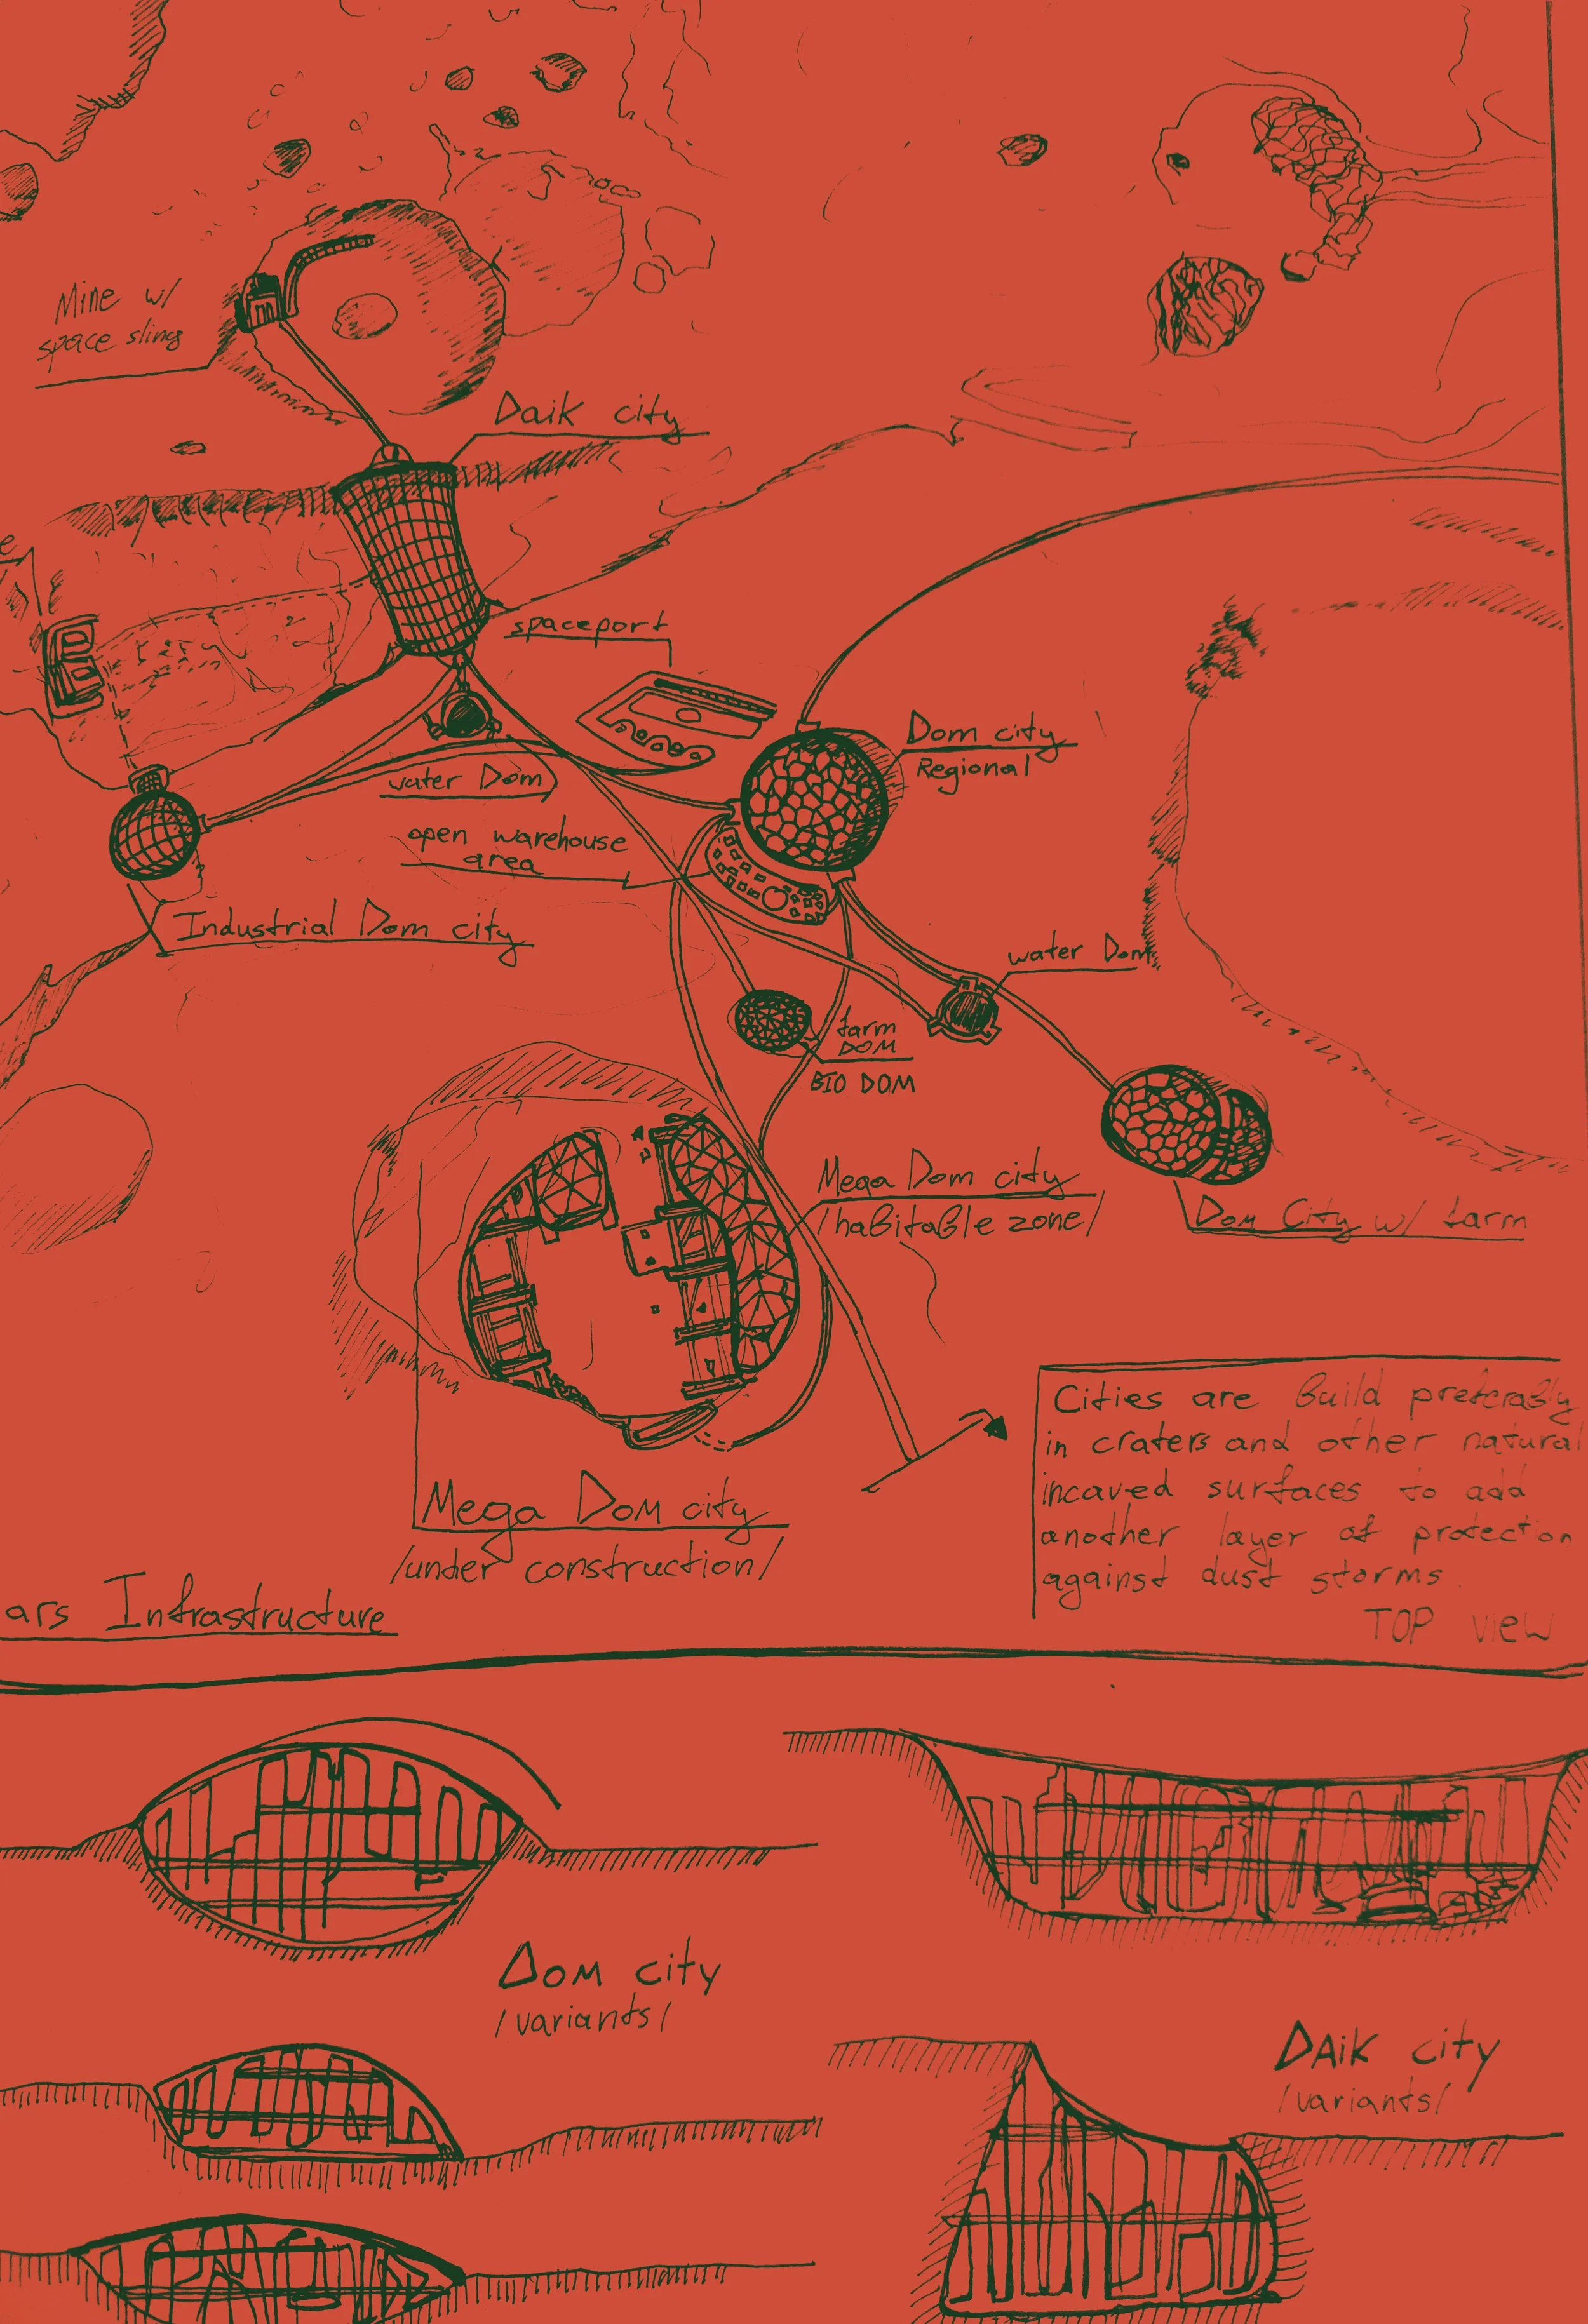 Mine w/
space sling
Daik city
spaceport
Dom city
Regional
water Dom
open warehouse
area
Industrial Dom city
water Dom
farm
DOM
BIO DOM
Mega Dom city
/habitable zone/
Dom City w/ farm
Cities are Build preferably
in craters and other natural
incaved surfaces to add
another layer of protection
against dust storms.
TOP view
Mega Dom city
/under construction/
ars Infrastructure
Dom city
/variants/
DAik city
/variants/